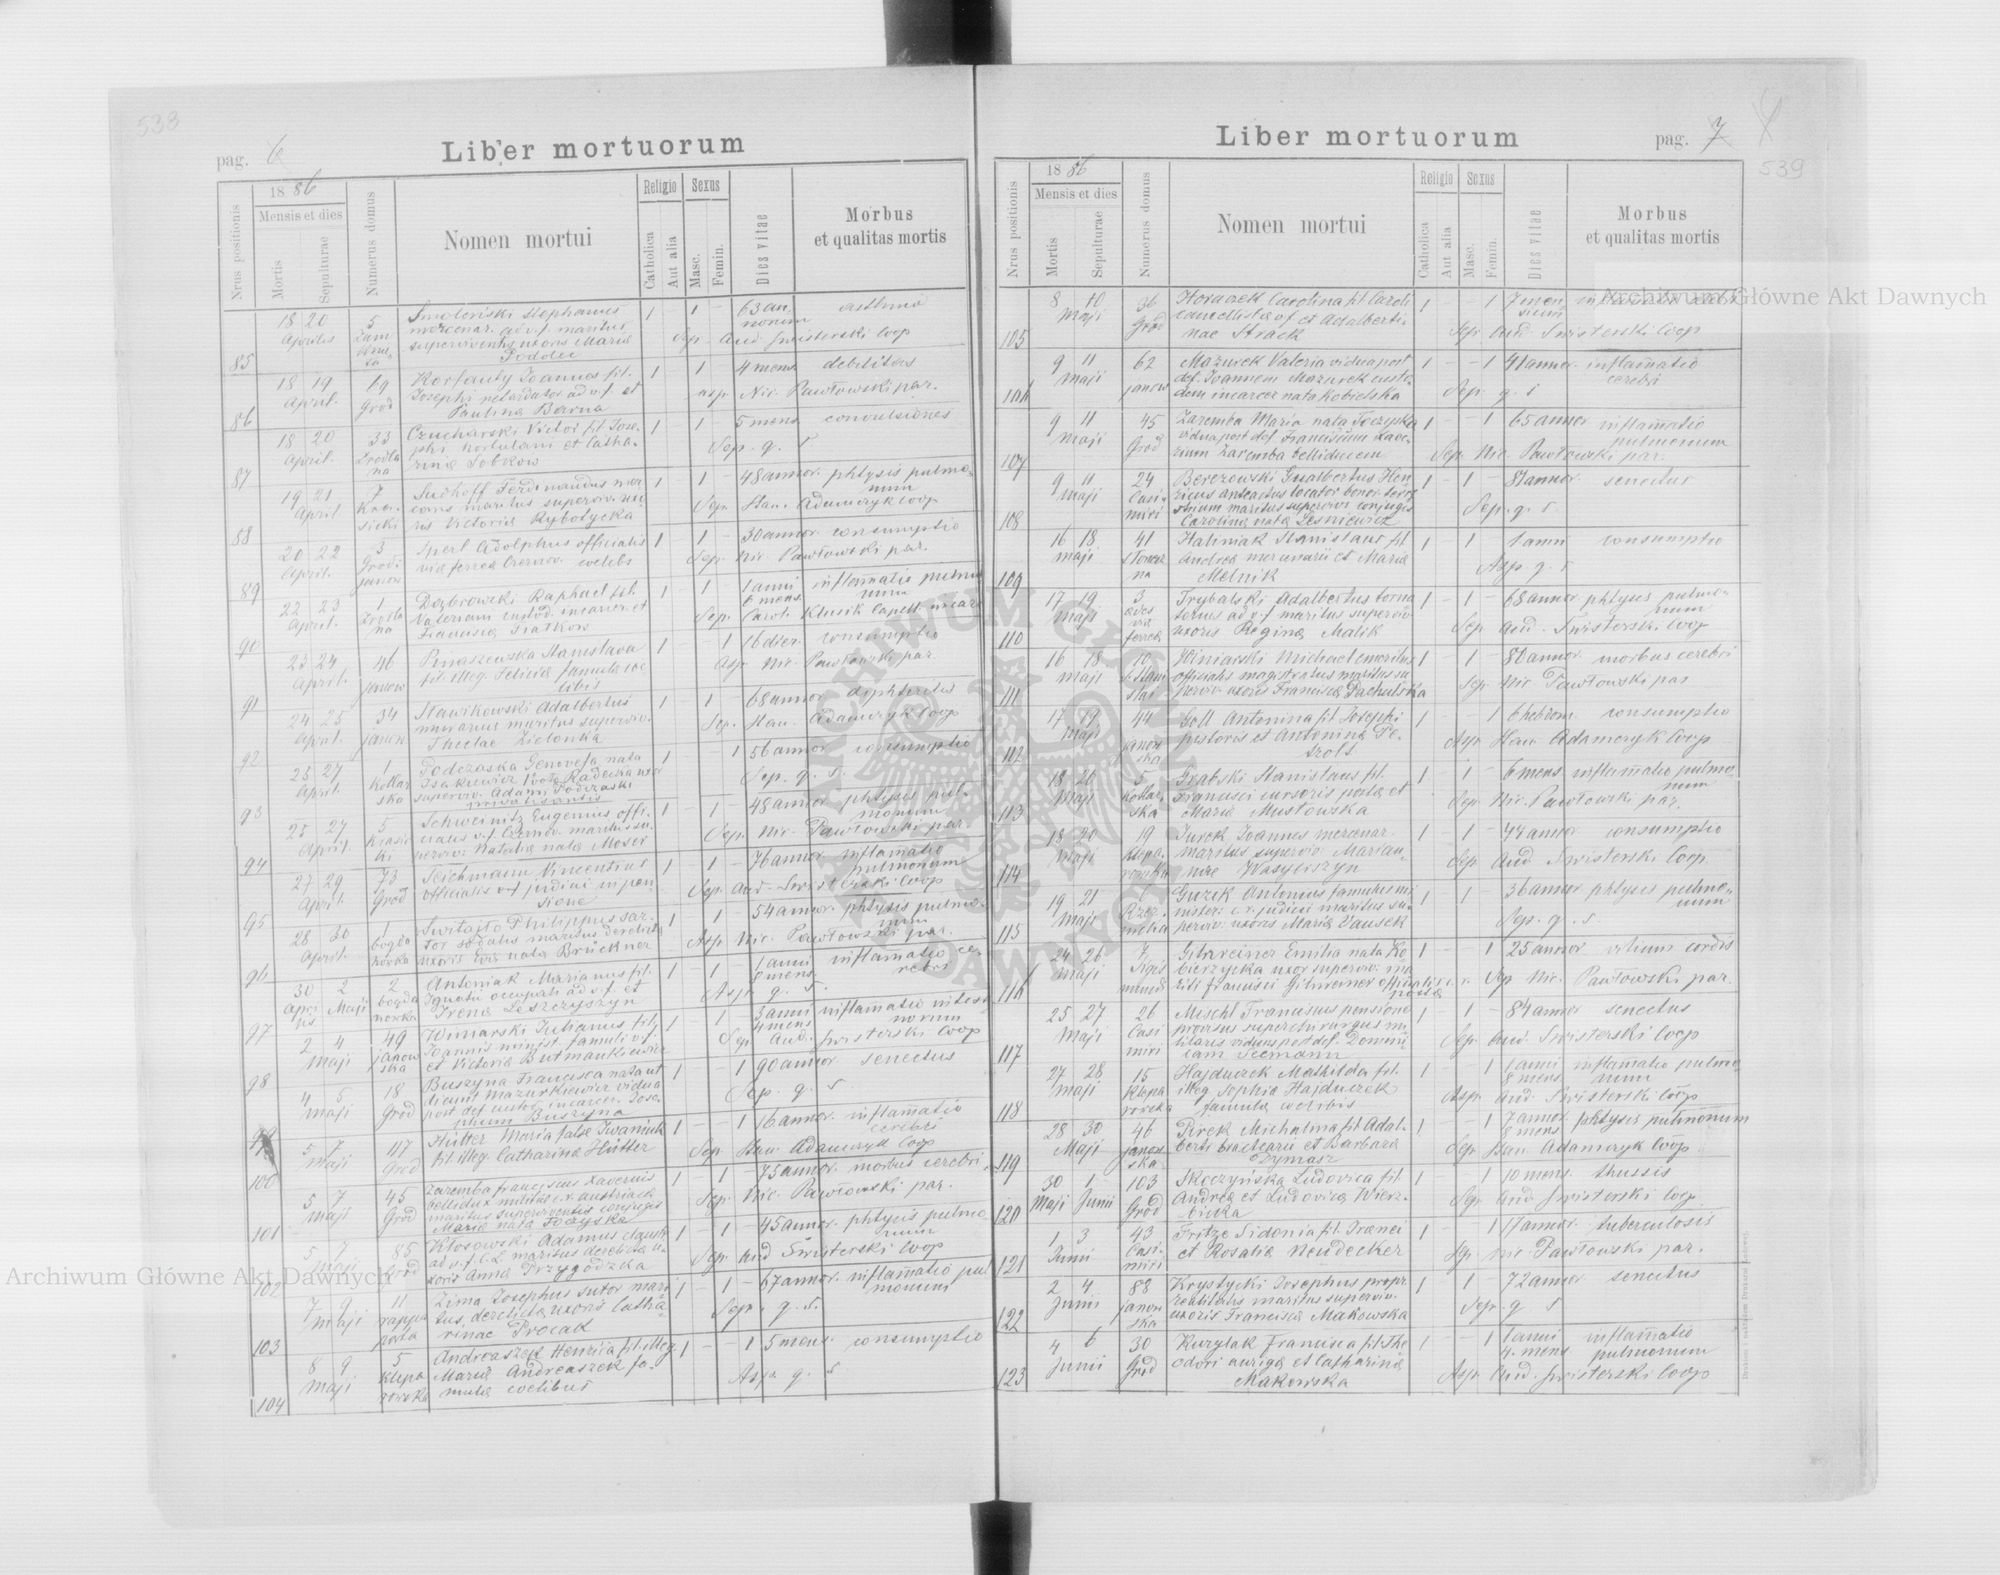 538
Liber mortuorum
pag. 6
Nrus positionis
1886
Mensis et dies
Mortis
Sepulturae
Numerus domus
Nomen mortui
Religio
Catholica
Aut alia
Sexus
Masc.
Femin.
Dies vitae
Morbus
et qualitas mortis
85
18 20
Aprilis
5
Smoleński Stephanus
mercenar. ad v.f. maritus
superviventis uxoris Maria
1 1 – 63 an
norum
asthma
Sep. Aud. Swisterski Coop
86
18 19
April.
19
Grod
Korfanty Joannes fil.
Josephi
Paulina Barna
1 1 4 mens debilitas
asp Nic. Pawłowski par.
87
18 20
April.
33
Zrodla
na
Czucharski Victor fil. Jose
phi hortulani et Catha
rina Sobków
1 1 – 5 mens convulsiones
Sep. q. s
88
19 21
April
7
Kra
sicki
Suchoff Ferdinandus mer
cens maritus superviv. ux
ris Victoria Rybotycka
1 1 – 48 annor. phtysis pulmo
num
Sep. Stan. Adamczyk Coop
89
20 22
April.
3
Grod
janow
Sperl Adolphus officialis
via ferrea Czernov. coelebs
1 1 – 30 annor. consumptio
Sep. Nic. Pawłowski par.
90
22 23
April.
1
Zrodla
na
Dąbrowski Raphael fil.
Valeriani custod. incarcer. et
Francisca Fiałkow
1 1 – 1 anni
6 mens.
inflam̃atio pulmo
num
Sep. Carol. Klusik Capell incarc
91
23 24
April.
46
janow
Stanislava
fil. illeg. Felicia famula coe
libis
1 – 1 16 dier. consumptio
Asp Nic. Pawłowski par.
92
24 25
April.
34
janow
Sławikowski Adalbertus
murarius maritus superviv.
Theclae Zielonka
1 1 – 68 annor diphteritis
Sep. Stan. Adamczyk Coop
93
25 27
April.
1
Kollar
ska
Podczaska Genovefa nata
Isakiewicz 1 voto Radecka uxor
superviv. Adami Podczaski
privatisantis
1 – 1 56 annor consumptio
Sep. q. s.
94
25 27
April.
5
Krasic
ki
Schweinitz Eugenius offi
cialis v.f. Czernov. maritus su
perviv. Natalia nata Moser
1 1 – 48 annor phtysis pul
monum
Sep. Nic. Pawłowski par.
95
27 29
April
73
Grod
Teichmann Vincentius
officialis judicii in pen
sione
1 1 – 76 annor inflam̃atio
pulmonum
Sep. Aud. Swisterski Coop
96
28 30
April.
1
bogda
nowka
Switajto Philippus sar
tor sodalis maritus derelicta
uxoris Eva nata Brückner
1 1 – 54 annor. phtysis pulmo
num
Asp Nic. Pawłowski par.
97
30 2
Apri
lis Maji
2
bogda
nowka
Antoniak Marianus fil.
Ignatii occupati ad v.f. et
Irena Leszczyszyn
1 1 – 1 anni
8 mens
inflamatio ce
rebri
Asp. q. s.
98
2 4
maji
49
janow
ska
Winiarski Julianus fil.
Joannis minist. famuli v.f.
et Victoria Butmankiewicz
1 1 – 3 anni
4 mens
inflam̃atio intest
norum
Sep. Aud. Swisterski Coop
99
4 5
maji
18
Grod
Buszyna Francisca nata ut
dicunt Mazurkiewicz vidua
post def. custo. incarcer. Jose
phum Buszyna
1 – 1 90 annor senectus
Sep. q. s
100
5 7
maji
117
Grod
Hütter Maria false Iwaniuk
fil. illeg. Catharina Hütter
1 – 1 16 annor. inflam̃atio
cerebri
Sep. Stan Adamczyk Coop
101
5 7
maji
45
Grod
Zaremba Franciscus Xaverius
bellidux militiae c.r. austriaca
maritus superviventis conjugis
Maria nata Toczyska
1 1 – 75 annor. morbus cerebri
Sep. Nic. Pawłowski par.
102
5 7
maji
85
Grod
Kłosowski Adamus
ad v.f. C.L. maritus derelicta u
xoris Anna Przygodzka
1 1 – 45 annor. phtysis pulmo
num
Sep. Aud Swisterski Coop
103
7 9
maji
11
rappa
porta
Zima Josephus sutor mari
tus, derelicta uxoris Catha
rinae Procak
1 1 – 67 annor. inflam̃atio pul
monum
Sep. q. s.
104
8 9
maji
5
klepa
rowska
Andreaszek Henrica fil. illeg.
Maria Andreaszek fa
mula coelibis
1 – 1 5 mens. consumptio
Asp. q. s
Liber mortuorum
pag. 7
539
Nrus positionis
1886
Mensis et dies
Mortis
Sepulturae
Numerus domus
Nomen mortui
Religio
Catholica
Aut alia
Sexus
Masc.
Femin.
Dies vitae
Morbus
et qualitas mortis
105
8 10
maji
36
Grod
Horaczek Carolina fil Caroli
cancellista v.f. et Adalberti
nae Strack
1 – 1 7 men
sium
Sep. Aud. Swisterski Coop
106
9 11
maji
62
janow
Mazurek Valeria vidua post
def. Joannem Mazurek custo
dem incarcer nata Kobielska
1 – 1 41 annor. inflam̃atio
cerebri
Sep q. s
107
9 11
maji
45
Grod
Zaremba Maria nata Toczyska
vidua post def. Franciscum Xave
rium Zaremba belliducem
1 – 1 65 annor inflam̃atio
pulmonum
Sep. Nic. Pawłowski par.
108
9 11
maji
24
Casi
miri
Berezowski Gualbertus Hen
ricus anteactus locator bonor. terre
strium maritus superviv. conjugis
Carolina nata Lesniewicz
1 1 – 81 annor. senectus
Sep. q. s.
109
16 18
maji
41
Słonecz
na
Haliniak Stanislaus fil
Andrea mercenarii et Maria
Melnik
1 1 – 1 anni consumptio
Asp q. s
110
17 19
maji
3
aedes
via
ferrea
Trybalski Adalbertus forna
torius ad v.f. maritus superviv
uxoris Regina Malik
1 1 – 68 annor phtysis pulmo
num
Sep Aud. Swisterski Coop
111
16 18
maji
10
Winiarski Michael emeritus
officialis magistratus maritus su
perviv. uxoris Francisca Pachulska
1 1 – 80 annor. morbus cerebri
Sep Nic Pawłowski par
112
17 19
maji
44
janow
ska
Goll Antonina fil Josephi
pistoris et Antonina Pe
tzolt
1 – 1 6 hebdom. consumptio
Asp Stan Adamczyk Coop
113
18 20
Maji
5
Kollar
ska
Grabski Stanislaus fil.
Francisci cursoris posta et
Maria Mustowska
1 1 – 6 mens inflam̃atio pulmo
num
Sep Nic. Pawłowski par.
114
18 20
maji
19
klepa
rowska
Jurek Joannes mercenar.
maritus superviv. Marian
nae Wasyliszyn
1 1 – 47 annor consumptio
Sep Aud Swisterski Coop
115
19 21
maji
6
Guzek Antonius famulus mi
nister c.r. judicii maritus su
perviv. uxoris Maria Vausek
1 1 – 36 annor phtysis pulmo
num
Sep. q. s.
116
24 26
maji
7
Sigis
mundi
Gilnreiner Emilia nata Ko
bierzycka uxor superviv. ma
riti Francisci Gilnreiner officialis c. r.
posta
1 – 1 25 annor vitium cordis
Sep Nic. Pawłowski par.
117
25 27
Maji
26
Casi
miri
Mischl Franciscus pensiona
provisus superchirurgus mi
litaris viduus post def. Domini
cam Seemann
1 1 – 84 annor senectus
Sep. Aud. Swisterski Coop
118
27 28
maji
15
Klepa
rowska
Hajduczek Mathilda fil.
illeg. Sophia Hajduczek
famula coelibis
1 – 1 1 anni
8 mens.
inflam̃atio pulmo
num
Asp. Aud. Swisterski Coop
119
28 30
Maji
46
janow
ska
Pirek Michalina fil Adal
berti bractearii et Barbara
Dymasz
1 – 1 7 annor
8 mens
phtysis pulmonum
Sep Stan Adamczyk Coop
120
30 1
Maji Junii
103
Grod
Skoczyńska Ludovica fil.
Andrea et Ludovica Wierz
bicka
1 – 1 10 mens. thussis
Sep. Aud. Swisterski Coop
121
1 3
Junii
43
Casi
miri
Fritze Sidonia fil. Irenei
et Rosalia Neudecker
1 – 1 17 annor. tuberculosis
Sep. Nic Pawłowski par.
122
2 4
Junii
88
janow
ska
Krystycki Josephus propr.
realitatis maritus superviv.
uxoris Francisca Makowska
1 1 – 72 annor senectus
Sep. q s
123
4 6
Junii
30
Grod
Kuzylak Francisca fil The
odori auriga et Catharina
Makowska
1 – 1 1 anni
4. mens.
inflam̃atio
pulmonum
Asp. Aud. Swisterski Coop
Archiwum Główne Akt Dawnych
Archiwum Główne Akt Dawnych
ARCHIWUM GŁÓWNE AKT DAWNYCH